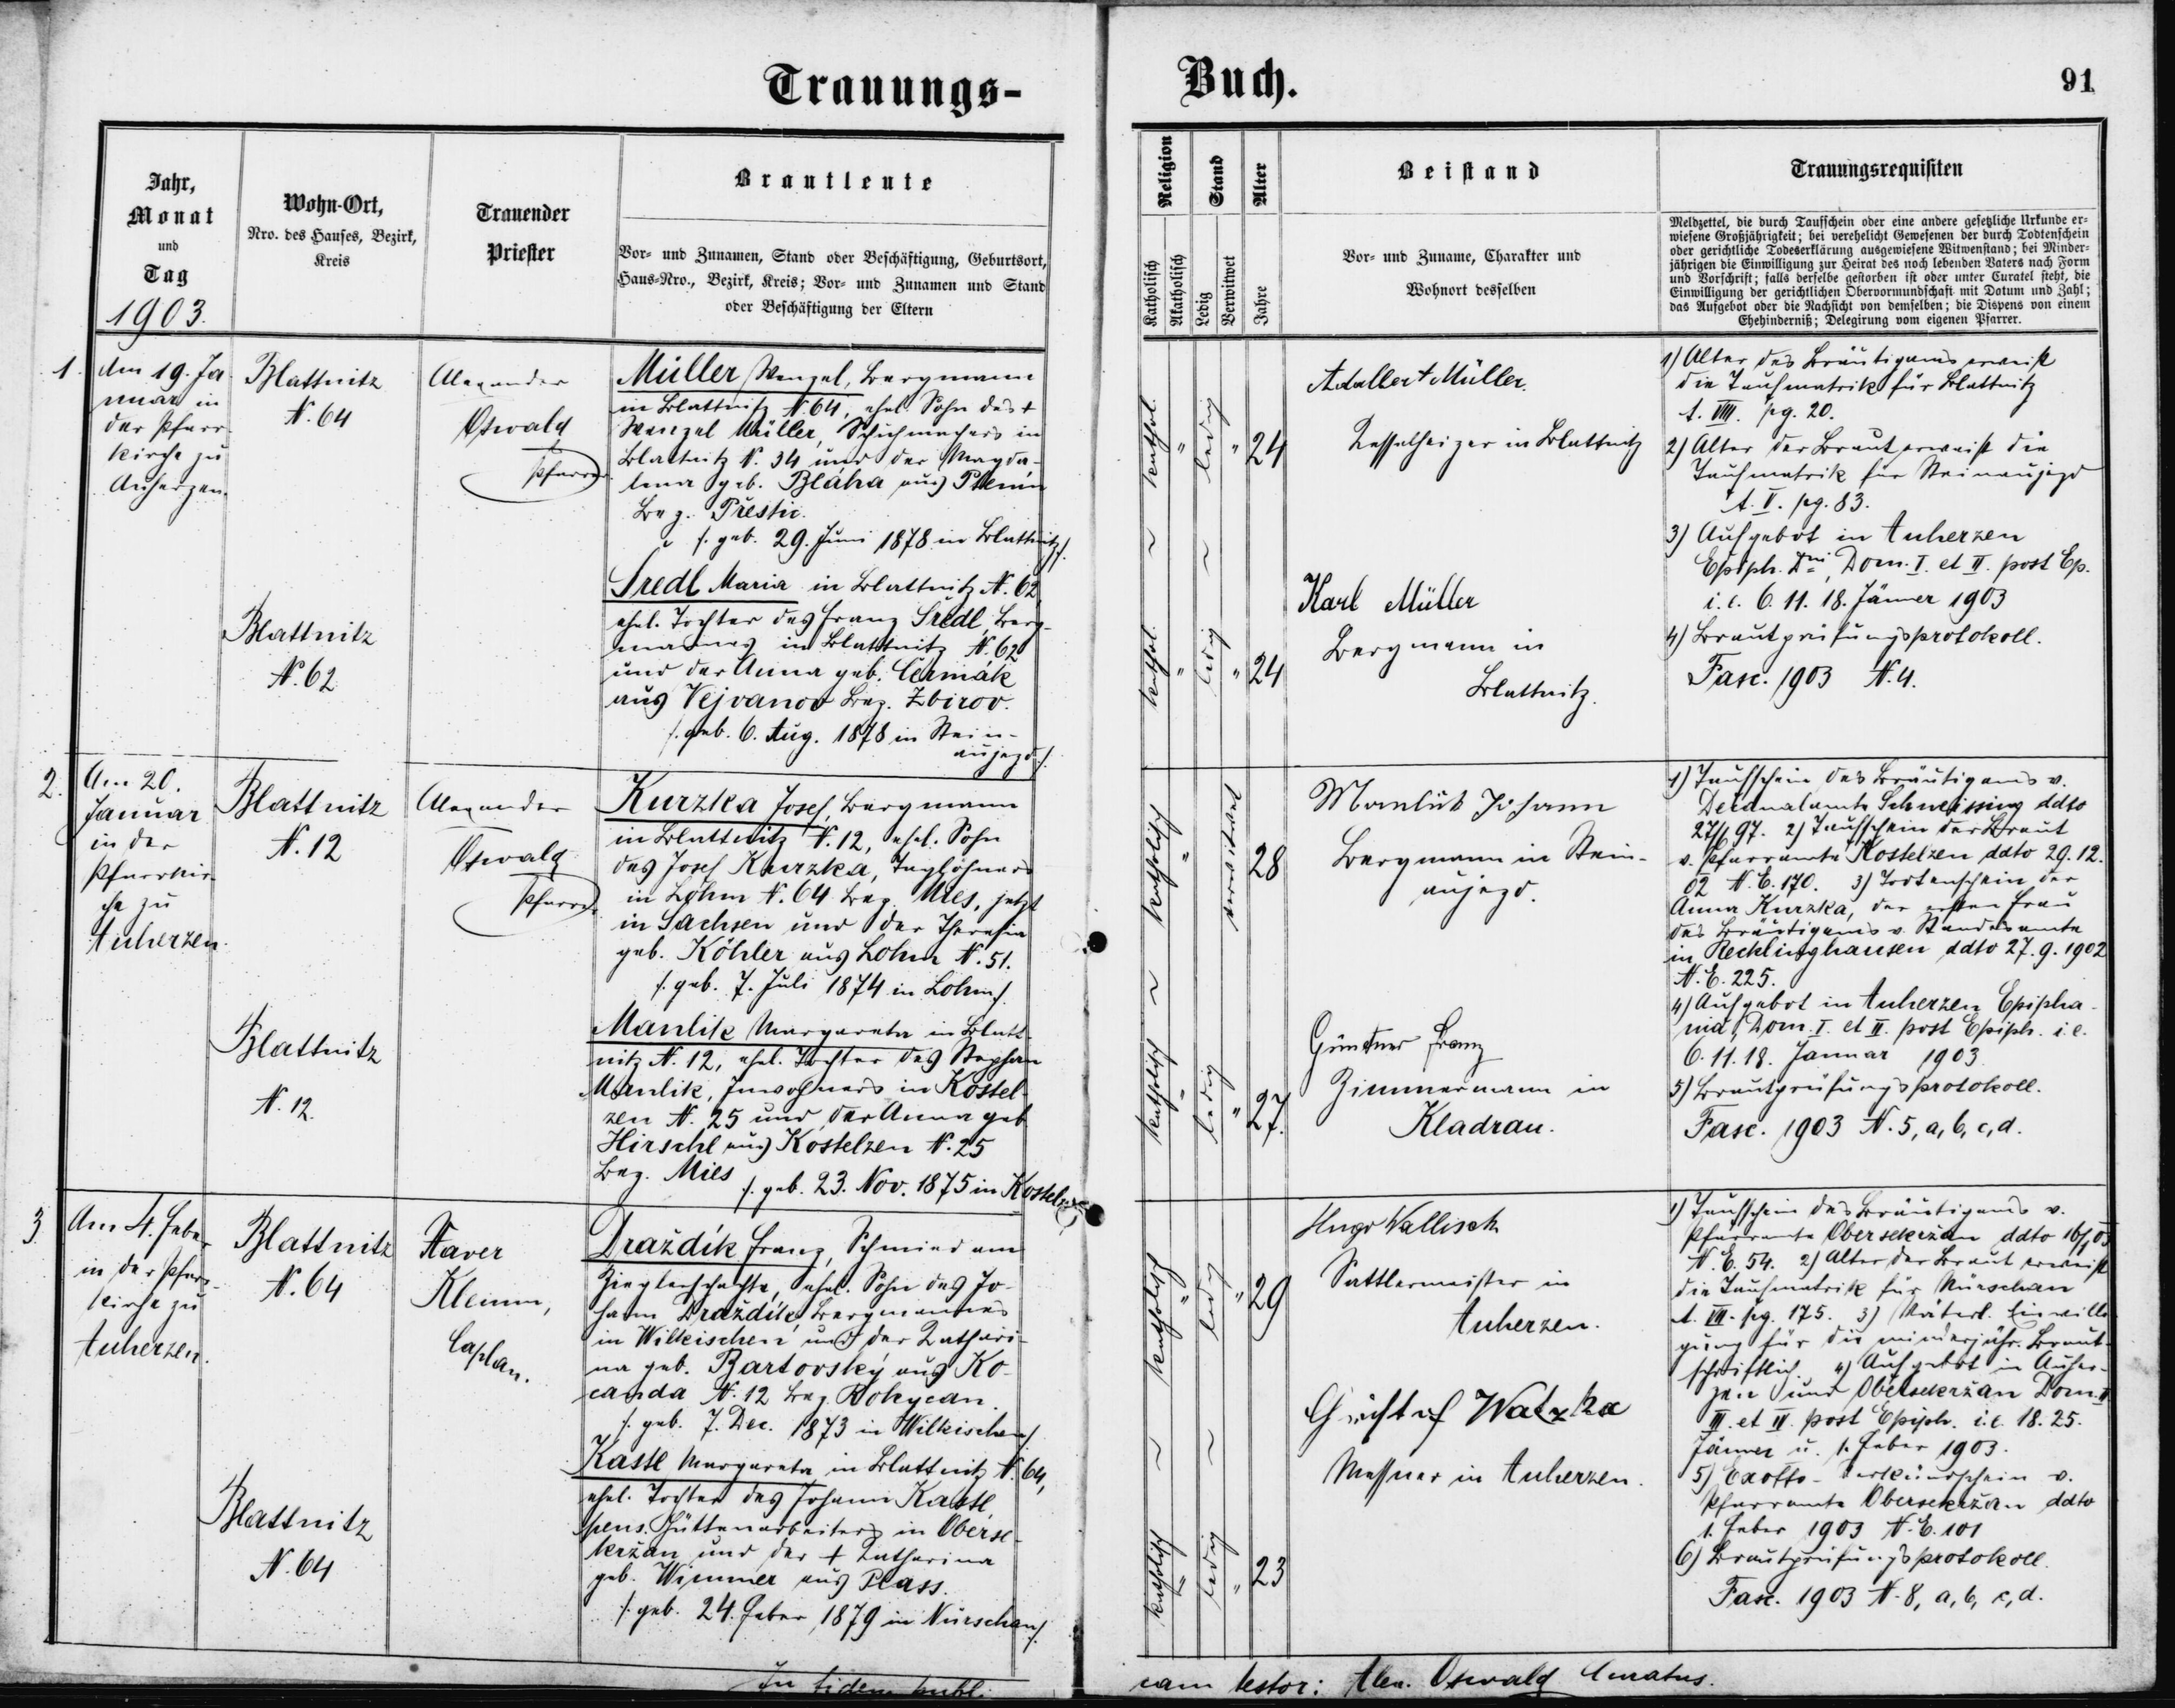 Trauungs-
Buch.
91
Jahr,
Monat
und
Tag
1903.
Wohn-Ort,
Nro. des Hauses, Bezirk,
Kreis
Trauender
Priester
Brautleute
Vor- und Zunamen, Stand oder Beschäftigung, Geburtsort,
Haus-Nro., Bezirk, Kreis; Vor- und Zunamen und Stand
oder Beschäftigung der Eltern
Religion
Katholisch
Akatholisch
Stand
Ledig
Verwitwet
Alter
Jahre
Beistand
Vor- und Zuname, Charakter und
Wohnort desselben
Trauungsrequisiten
Meldzettel, die durch Taufschein oder eine andere gesetzliche Urkunde er-
wiesene Großjährigkeit; bei verehelicht Gewesenen der durch Todtenschein
oder gerichtliche Todeserklärung ausgewiesene Witwenstand; bei Minder-
jährigen die Einwilligung zur Heirat des noch lebenden Vaters nach Form
und Vorschrift; falls derselbe gestorben ist oder unter Curatel steht, die
Einwilligung der gerichtlichen Obervormundschaft mit Datum und Zahl;
das Aufgebot oder die Nachsicht von demselben; die Dispens von einem
Ehehinderniß; Delegirung vom eigenen Pfarrer.
1.
Am 19. Ja-
nuar in
der Pfarr-
kirche zu
Auherzen.
Blattnitz
N. 64
Blattnitz
N. 62
Alexander
Oswald
Pfarrer
Müller Wenzel, Bergmann
in Blattnitz N. 64, ehel. Sohn des †
Wenzel Müller, Schuhmachers in
Blattnitz N. 34 und der Magda-
lena geb. Bláha aus
Bez. Přestic.
/. geb. 29. Juni 1878 in Blattnitz /.
Sredl Maria in Blattnitz N. 62,
ehel. Tochter des Franz Sredl, Berg-
mannes in Blattnitz N. 62
und der Anna geb. Čermák
aus Vejvanov Bez. Zbirov.
/. geb. 6. Aug. 1878 in Stein-
aujezd /.
kathol. " ledig " 24
kathol. " ledig " 24
Adalbert Müller.
Kesselheizer in Blattnitz
Karl Müller
Bergmann in
Blattnitz.
1) Alter des Bräutigams erweist
die Taufmatrik für Blattnitz
t. VIII. pg. 20.
2) Alter der Braut erweist die
Taufmatrik für Steinaujezd
t. V. pg. 83.
3) Aufgebot in Auherzen
Epiph. Dni, Dom. I. et II. post Ep.
i. e. 6. 11. 18. Jänner 1903
4) Brautprüfungsprotokoll.
Fasc. 1903 N. 4.
2.
Am 20.
Januar
in der
Pfarrkir-
che zu
Auherzen.
Blattnitz
N. 12
Blattnitz
N. 12.
Alexander
Oswald
Pfarrer
Kurzka Josef, Bergmann
in Blattnitz N. 12, ehel. Sohn
des Josef Kurzka, Taglöhners
in Lohm N. 64 Bez. Mies, jetzt
in Sachsen und der Theresia
geb. Köhler aus Lohm N. 51.
/. geb. 7. Juli 1874 in Lohm /.
Manlik Margareta in Blatt-
nitz N. 12, ehel. Tochter des Stephan
Manlik, Inwohners in Kostel-
zen N. 25 und der Anna geb.
Hirschl aus Kostelzen N. 25
Bez. Mies
/. geb. 23. Nov. 1875 in Kostelzen
katholisch " verwitwet 28
katholisch " ledig " 27.
Manlik Johann
Bergmann in Stein-
aujezd.
Güntner Franz
Zimmermann in
Kladrau.
1) Taufschein des Bräutigams v.
Decanalamte Schweissing ddto
27/1 97. 2) Taufschein der Braut
v. Pfarramte Kostelzen ddto 29. 12.
02 N. E. 170. 3) Todtenschein der
Anna Kurzka, der ersten Frau
des Bräutigams v. Standesamte
in Recklinghausen ddto 27. 9. 1902
N. E. 225.
4) Aufgebot in Auherzen Epipha-
nia, Dom. I. et II. post Epiph. i. e.
6. 11. 18. Januar 1903.
5) Brautprüfungsprotokoll.
Fasc. 1903 N. 5, a, b, c, d.
3
Am 4. Feber
in der Pfarr-
kirche zu
Auherzen.
Blattnitz
N. 64
Blattnitz
N. 64
Xaver
Klemm,
Caplan.
Draždík Franz, Schmied am
Zieglerschachte, ehel. Sohn des Jo-
hann Draždík, Bergmannes
in Wilkischen und der Kathari-
na geb. Bartovský aus Ko-
canda N. 12 Bez. Rokycan.
/. geb. 7. Dec. 1873 in Wilkischen /.
Kastl Margareta in Blattnitz N. 64,
ehel. Tochter des Johann Kastl,
pens. Hüttenarbeiters in Oberse-
keržan und der † Katharina
geb. Wimmer aus Plass.
/. geb. 24. Feber 1879 in Nürschan /.
katholisch " ledig " 29
katholisch " ledig " 23
Hugo Wallisch
Sattlermeister in
Auherzen.
Watzka
Messner in Auherzen.
1) Taufschein des Bräutigams v.
Pfarramte Obersekeržan ddto 16/1 03
N. E. 54. 2) Alter der Braut erweist
die Taufmatrik für Nürschan
t. VII. pg. 175. 3) Väterl. Einwilli-
gung für die minderjähr. Braut
schriftlich. 4) Aufgebot in Auher-
zen und Obersekeržan Dom. II
III. et IV. post Epiph. i. e. 18. 25.
Jänner u. 1. Feber 1903.
5) Exoffo - Verkündschein v.
Pfarramte Obersekeržan ddto
1. Feber 1903 N. E. 101
6) Brautprüfungsprotokoll.
Fasc. 1903 N. 8, a, b, c, d.
In fidem publi-
cam testor: Alex. Oswald Curatus.